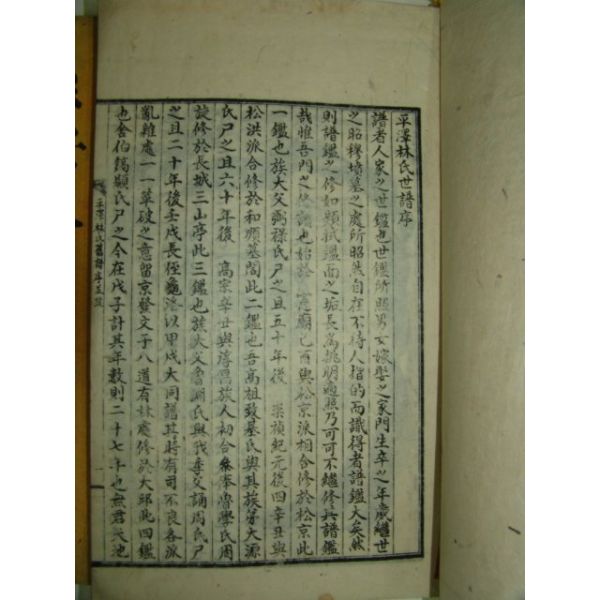 平澤林氏世譜序
譜者人家之世鑑也世鑑所照男女嫁娶之家門生卒之年歲繼世
之昭穆墳墓之處所昭然自在不待人指的而識得者譜鑑大矣然
則譜鑑之修如顯拭鑑面之垢長為挑明遍照乃可可不鑑修兵譜鑑
哉惟吾門之也始於憲廟己酉與松京派相合修於松京此
一鑑也族大父弼祿氏尸之且五十年後崇禎紀元後四辛丑與
松洪派合修於和順墓閣此二鑑也吾高祖致基氏與其族弟大源
氏尸之且六十年後高宗辛丑與淳昌族人初合參奉魯學氏周
旋修於長城三山亭此三鑑也族大父會淵氏與我季父誦周氏尸
之且二十年後壬戌長侄以甲戌大同譜其時有司不良各派
亂雜處一一革破之意留京發文于八道有林處修於大邱此四鑑
也舍伯鎬顯氏尸之今在戊子計其年數則二十七年也無君天地
平澤林氏舊譜序